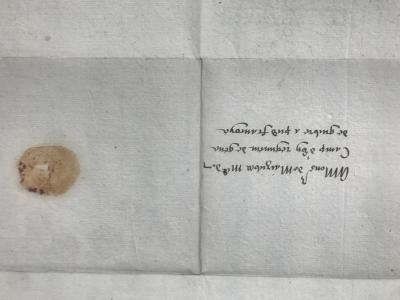 A Monsr de Marguben Mr de
Camp d'un regiment de gens
de guerre a pied francoys